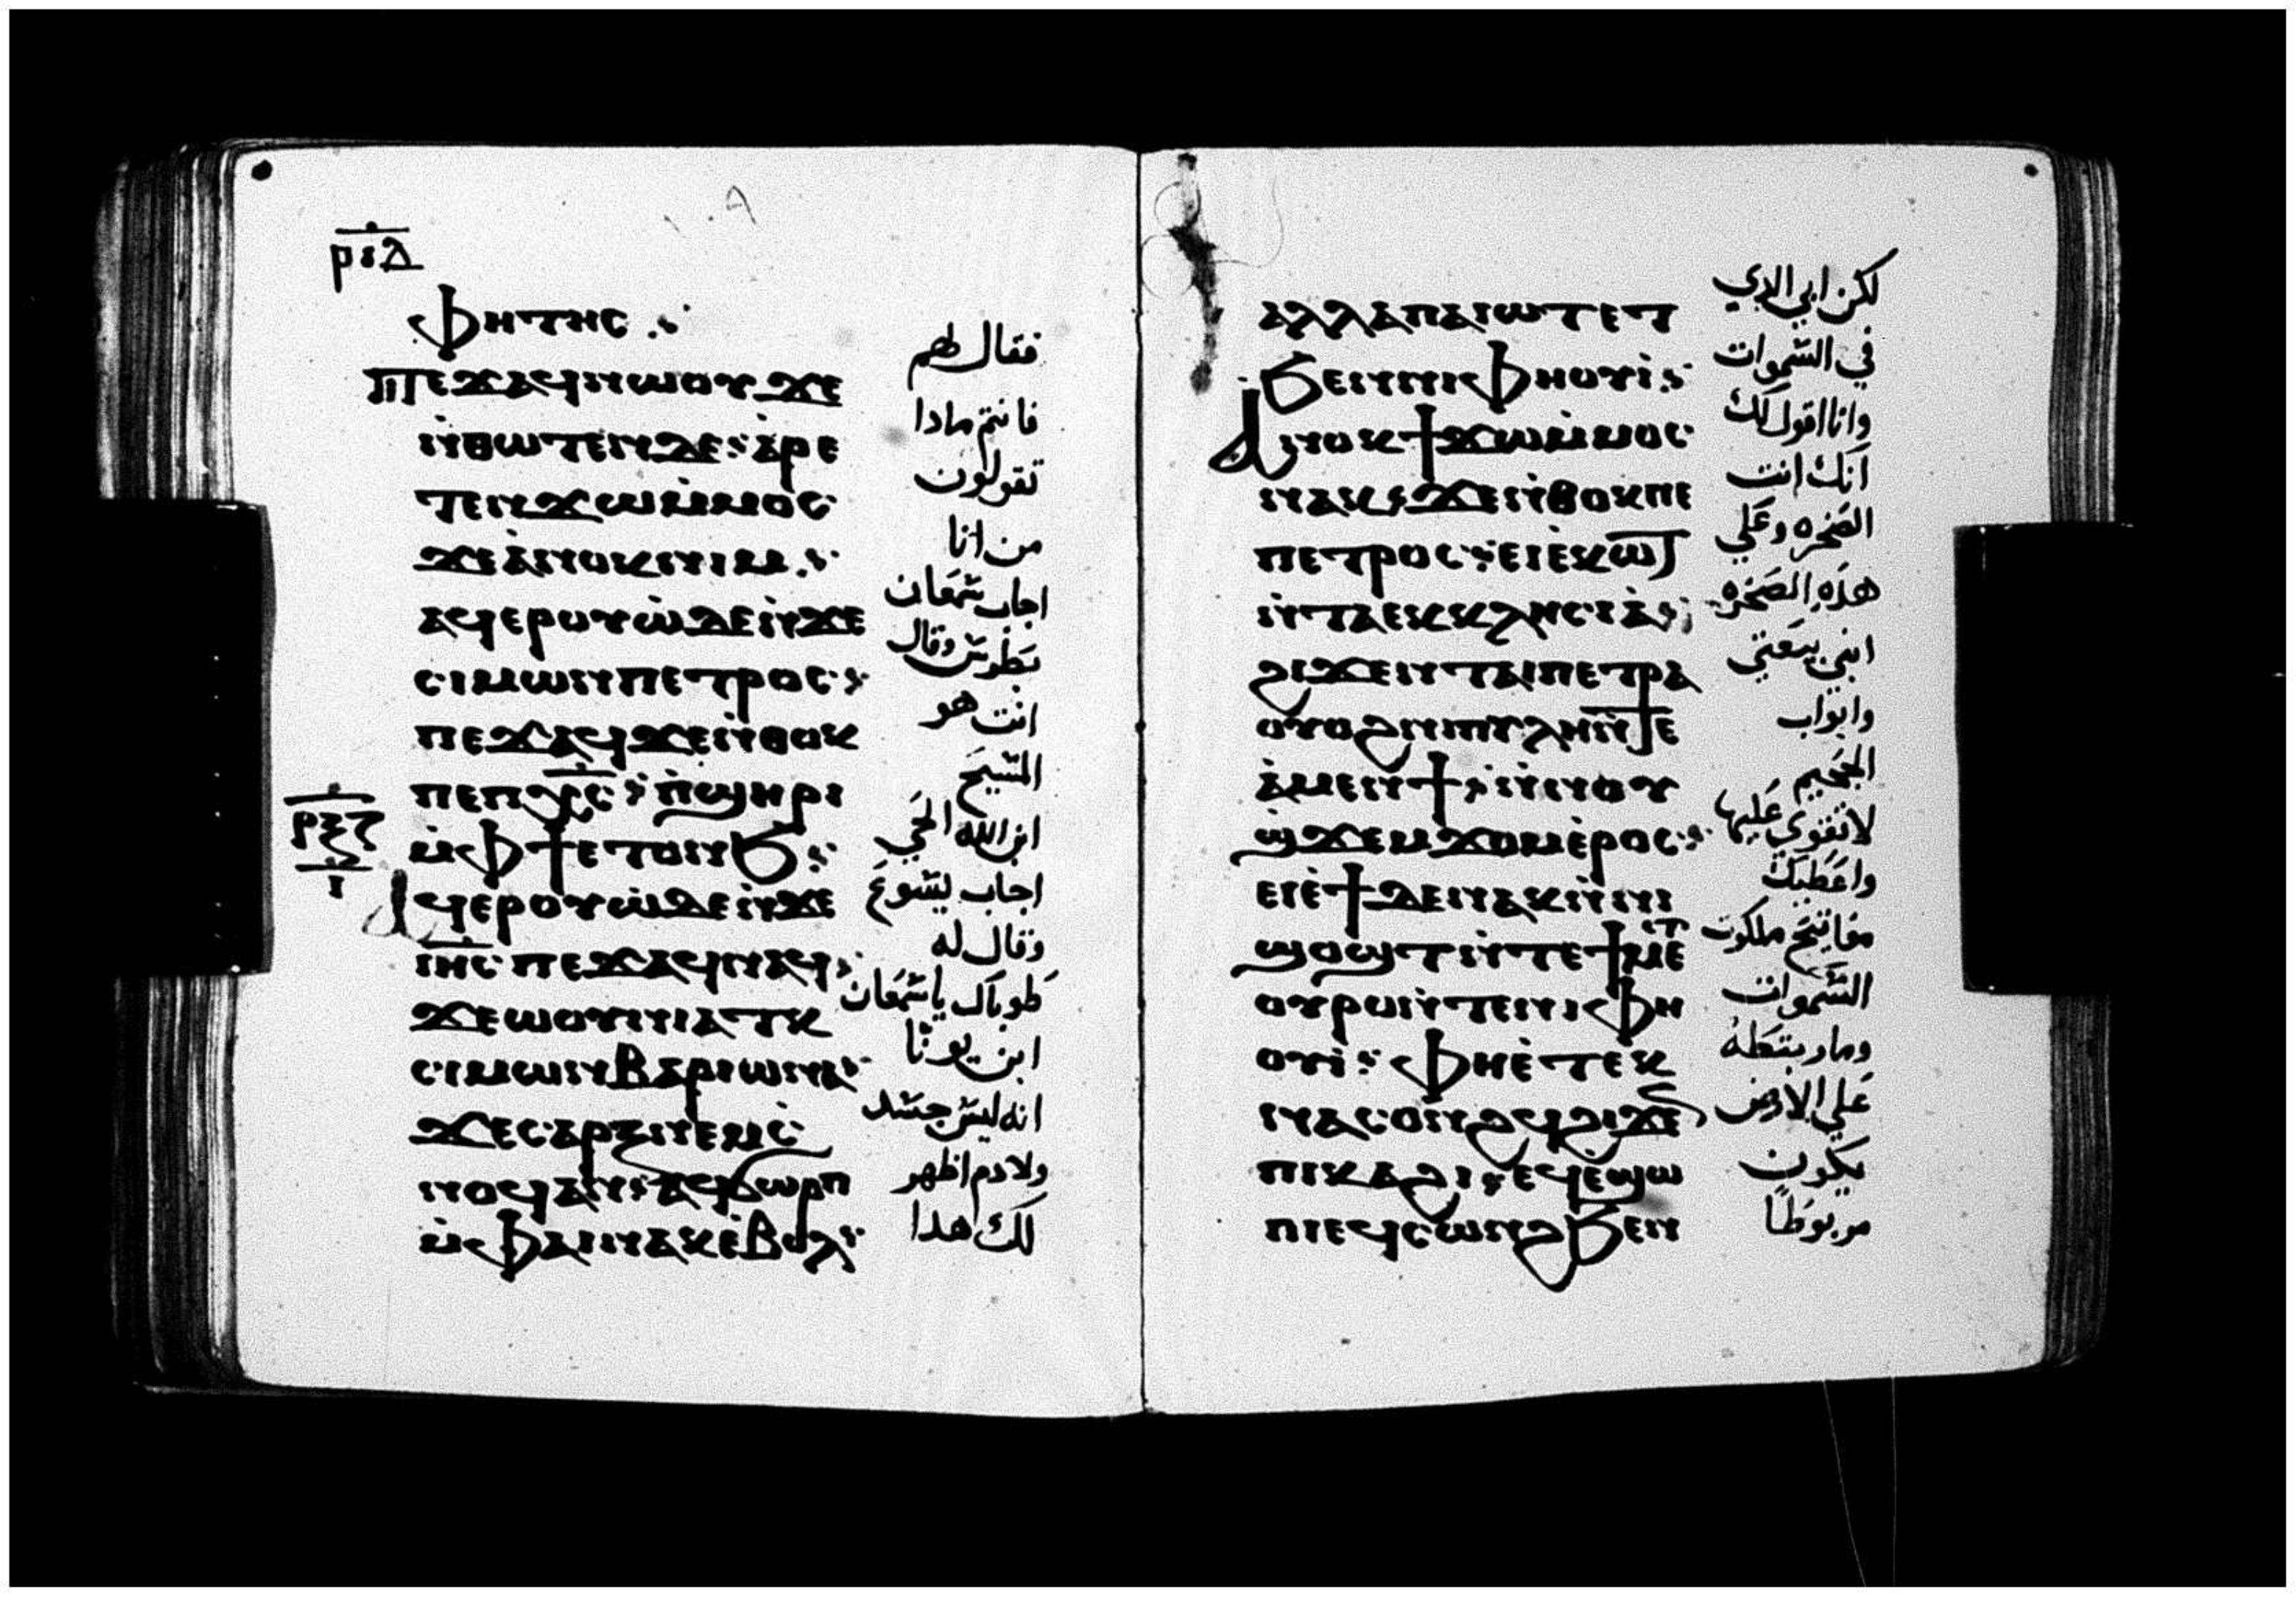 ⲣⲓⲇ
ⲫⲏⲧⲏⲥ
ⲡⲉϫⲁϥⲛⲱⲟⲩϫⲉ
ⲛ̇ⲑⲱⲧⲉⲛⲇⲉ ⲁ̇ⲣⲉ
ⲧⲉⲛϫⲱⲙ̇ⲙⲟⲥ
ϫⲉⲁ̇ⲛⲟⲕⲛⲓⲙ
ⲁϥⲉⲣⲟⲩⲱ̇ⲇⲉⲛ̇ϫⲉ
ⲥⲓⲙⲱⲛⲡⲉⲧⲣⲟⲥ
ⲡⲉϫⲁϥϫⲉⲛ̇ⲑⲟⲕ
ⲡⲉⲡⲭ̅ⲣ̅ⲥ̅ ⲡ̇ϣⲏⲣⲓ
ⲙ̇ⲫϯⲉⲧⲟⲛϧ
ⲣⲝⲍ
ⲓ
ⲁϥⲉⲣⲟⲩⲱ̇ⲇⲉⲛ̇ϫⲉ
ⲓ̅ⲏ̅ⲥ̅ ⲡⲉϫⲁϥⲛⲁϥ
ϫⲉⲱⲟⲩⲛⲓⲁⲧⲕ
ⲥⲓⲙⲱⲛⲃⲁⲣⲓⲱⲛⲁ
ϫⲉⲥⲁⲣⲝⲛⲉⲙⲥ̇
ⲛⲟϥⲁⲛ ⲁϥϭⲱⲣⲡ
ⲙ̇ⲫⲁⲓⲛⲁⲕⲉ̇ⲃⲟⲗ
فقال لهم
فانتم مادا
تقولون
من انا
اجاب شمعان
بطرس وقال
انت هو
المسيح
ابن الله الحي
اجاب يسوع
وقال له
طوباك ياشمعان
ابن يونا
انه ليس جسد
ولا دم اظهر
لك هدا
ⲁⲗⲗⲁⲡⲁⲓⲱⲧⲉⲧ
ϧⲉⲛⲛⲓⲫⲏⲟⲩⲓ̇
ⲁⲛⲟⲕϯϫⲱⲙ̇ⲙⲟⲥ
ⲛⲁⲕ ϫⲉⲛ̇ⲑⲟⲕⲡⲉ
ⲡⲉⲧⲣⲟⲥ ⲉⲓⲉ̇ⲕⲱϯ
ⲛ̇ⲧⲁⲉⲕⲕⲗⲏⲥⲓⲁ̇
ϩⲓϫⲉⲛⲧⲁⲓⲡⲉⲧⲣⲁ
ⲟⲩⲟϩⲛⲓⲡⲩⲗⲏⲛ̇ⲧⲉ
ⲁ̇ⲙⲉⲛϯ ⲛ̇ⲛⲟⲩ
ϣϫⲉⲙϫⲟⲙⲉ̇ⲣⲟⲥ
ⲉⲓⲉ̇ϯⲇⲉⲛⲁⲕⲛ̇ⲛⲓ
ϣⲟϣⲧⲛ̇ⲧⲉϯⲙⲉⲧ
ⲟⲩⲣⲟⲛ̇ⲧⲉⲛⲓⲫⲏ
ⲟⲩⲓ̇ ⲫⲏⲉ̇ⲧⲉⲕ
ⲛⲁⲥⲟⲛϩϥϩⲓϫⲉⲛ
ⲡⲓⲕⲁϩⲓ ⲉϥⲉ̇ϣⲱ
ⲡⲓⲉϥⲥⲱⲛϩϧⲉⲛ
لكن ابي الدي
في السموات
وانا اقول لك
انك انت
الصخره وعلي
هذه الصخره
ابني بيعتي
وابواب
الجحيم
لا تقوي عليها
واعطيك
مفاتيح ملكوت
السموات
وما ربتطه
علي الارض
يكون
مربوطا